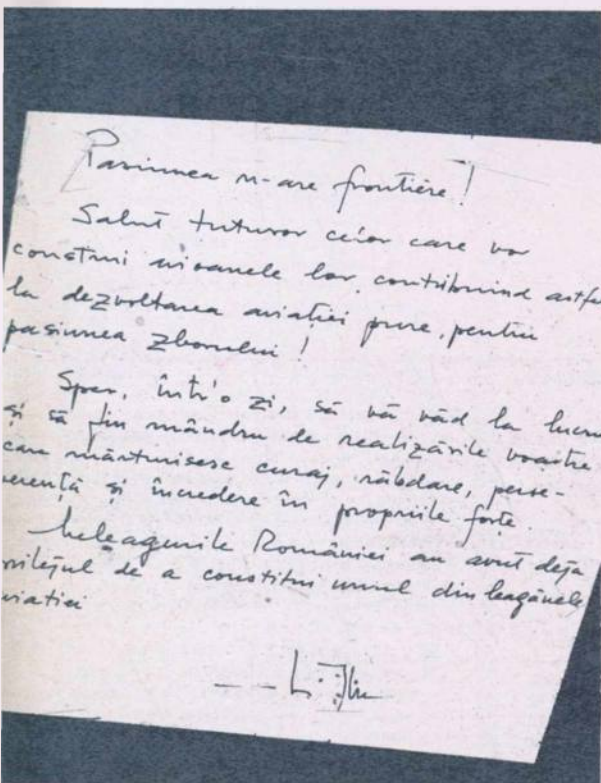 Pasiunea n-are frontiere!
Salut tuturor celor care vor
construi avioanele lor, contribuind astfe
la dezvoltarea aviației pure, pentru
pasiunea zborului!
Sper, într'o zi, să vă văd la lucru
și să fiu mândru de realizările voastre
care mărturisesc curaj, răbdare, perse-
verență și încredere în propriile forțe.
Meleagurile României au avut deja
rivilejul de a constitui unul din leagănele
viatiei